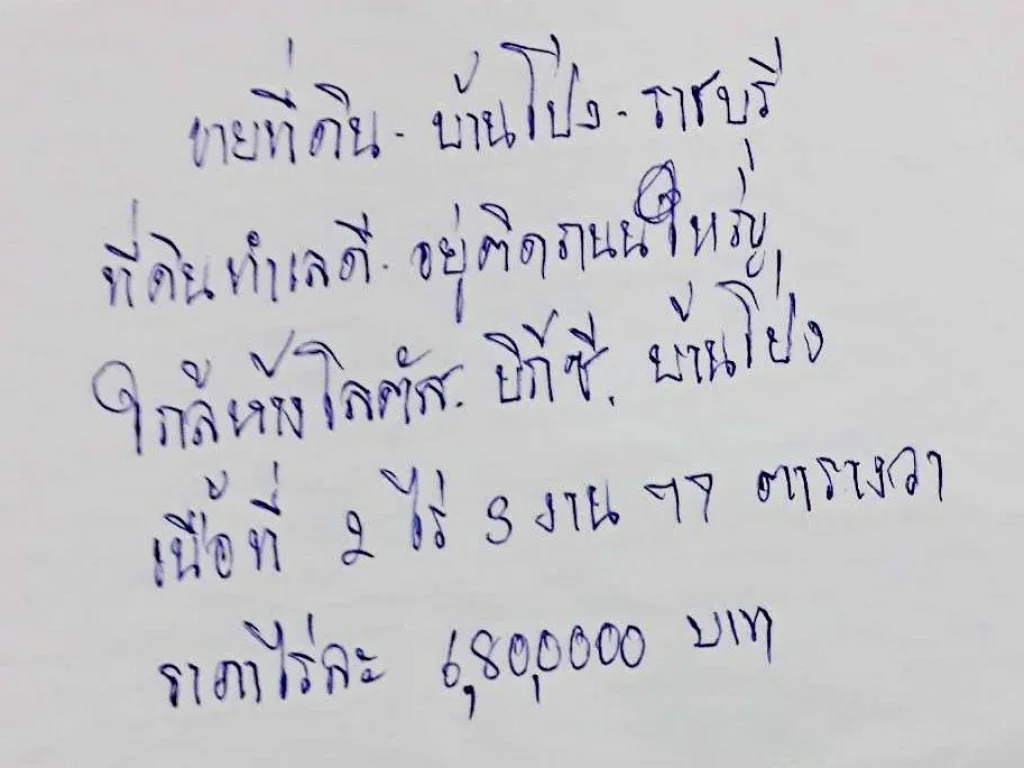 ขายที่ดิน - บ้านโป่ง - ราชบุรี
ที่ดินทำเลดี - อยู่ติดถนนใหญ่
ใกล้ห้างโลตัส - บิ๊กซี. บ้านโป่ง
เนื้อที่ 2 ไร่ 3 งาน 77 ตารางวา
ราคาไร่ละ 6,800,000 บาท